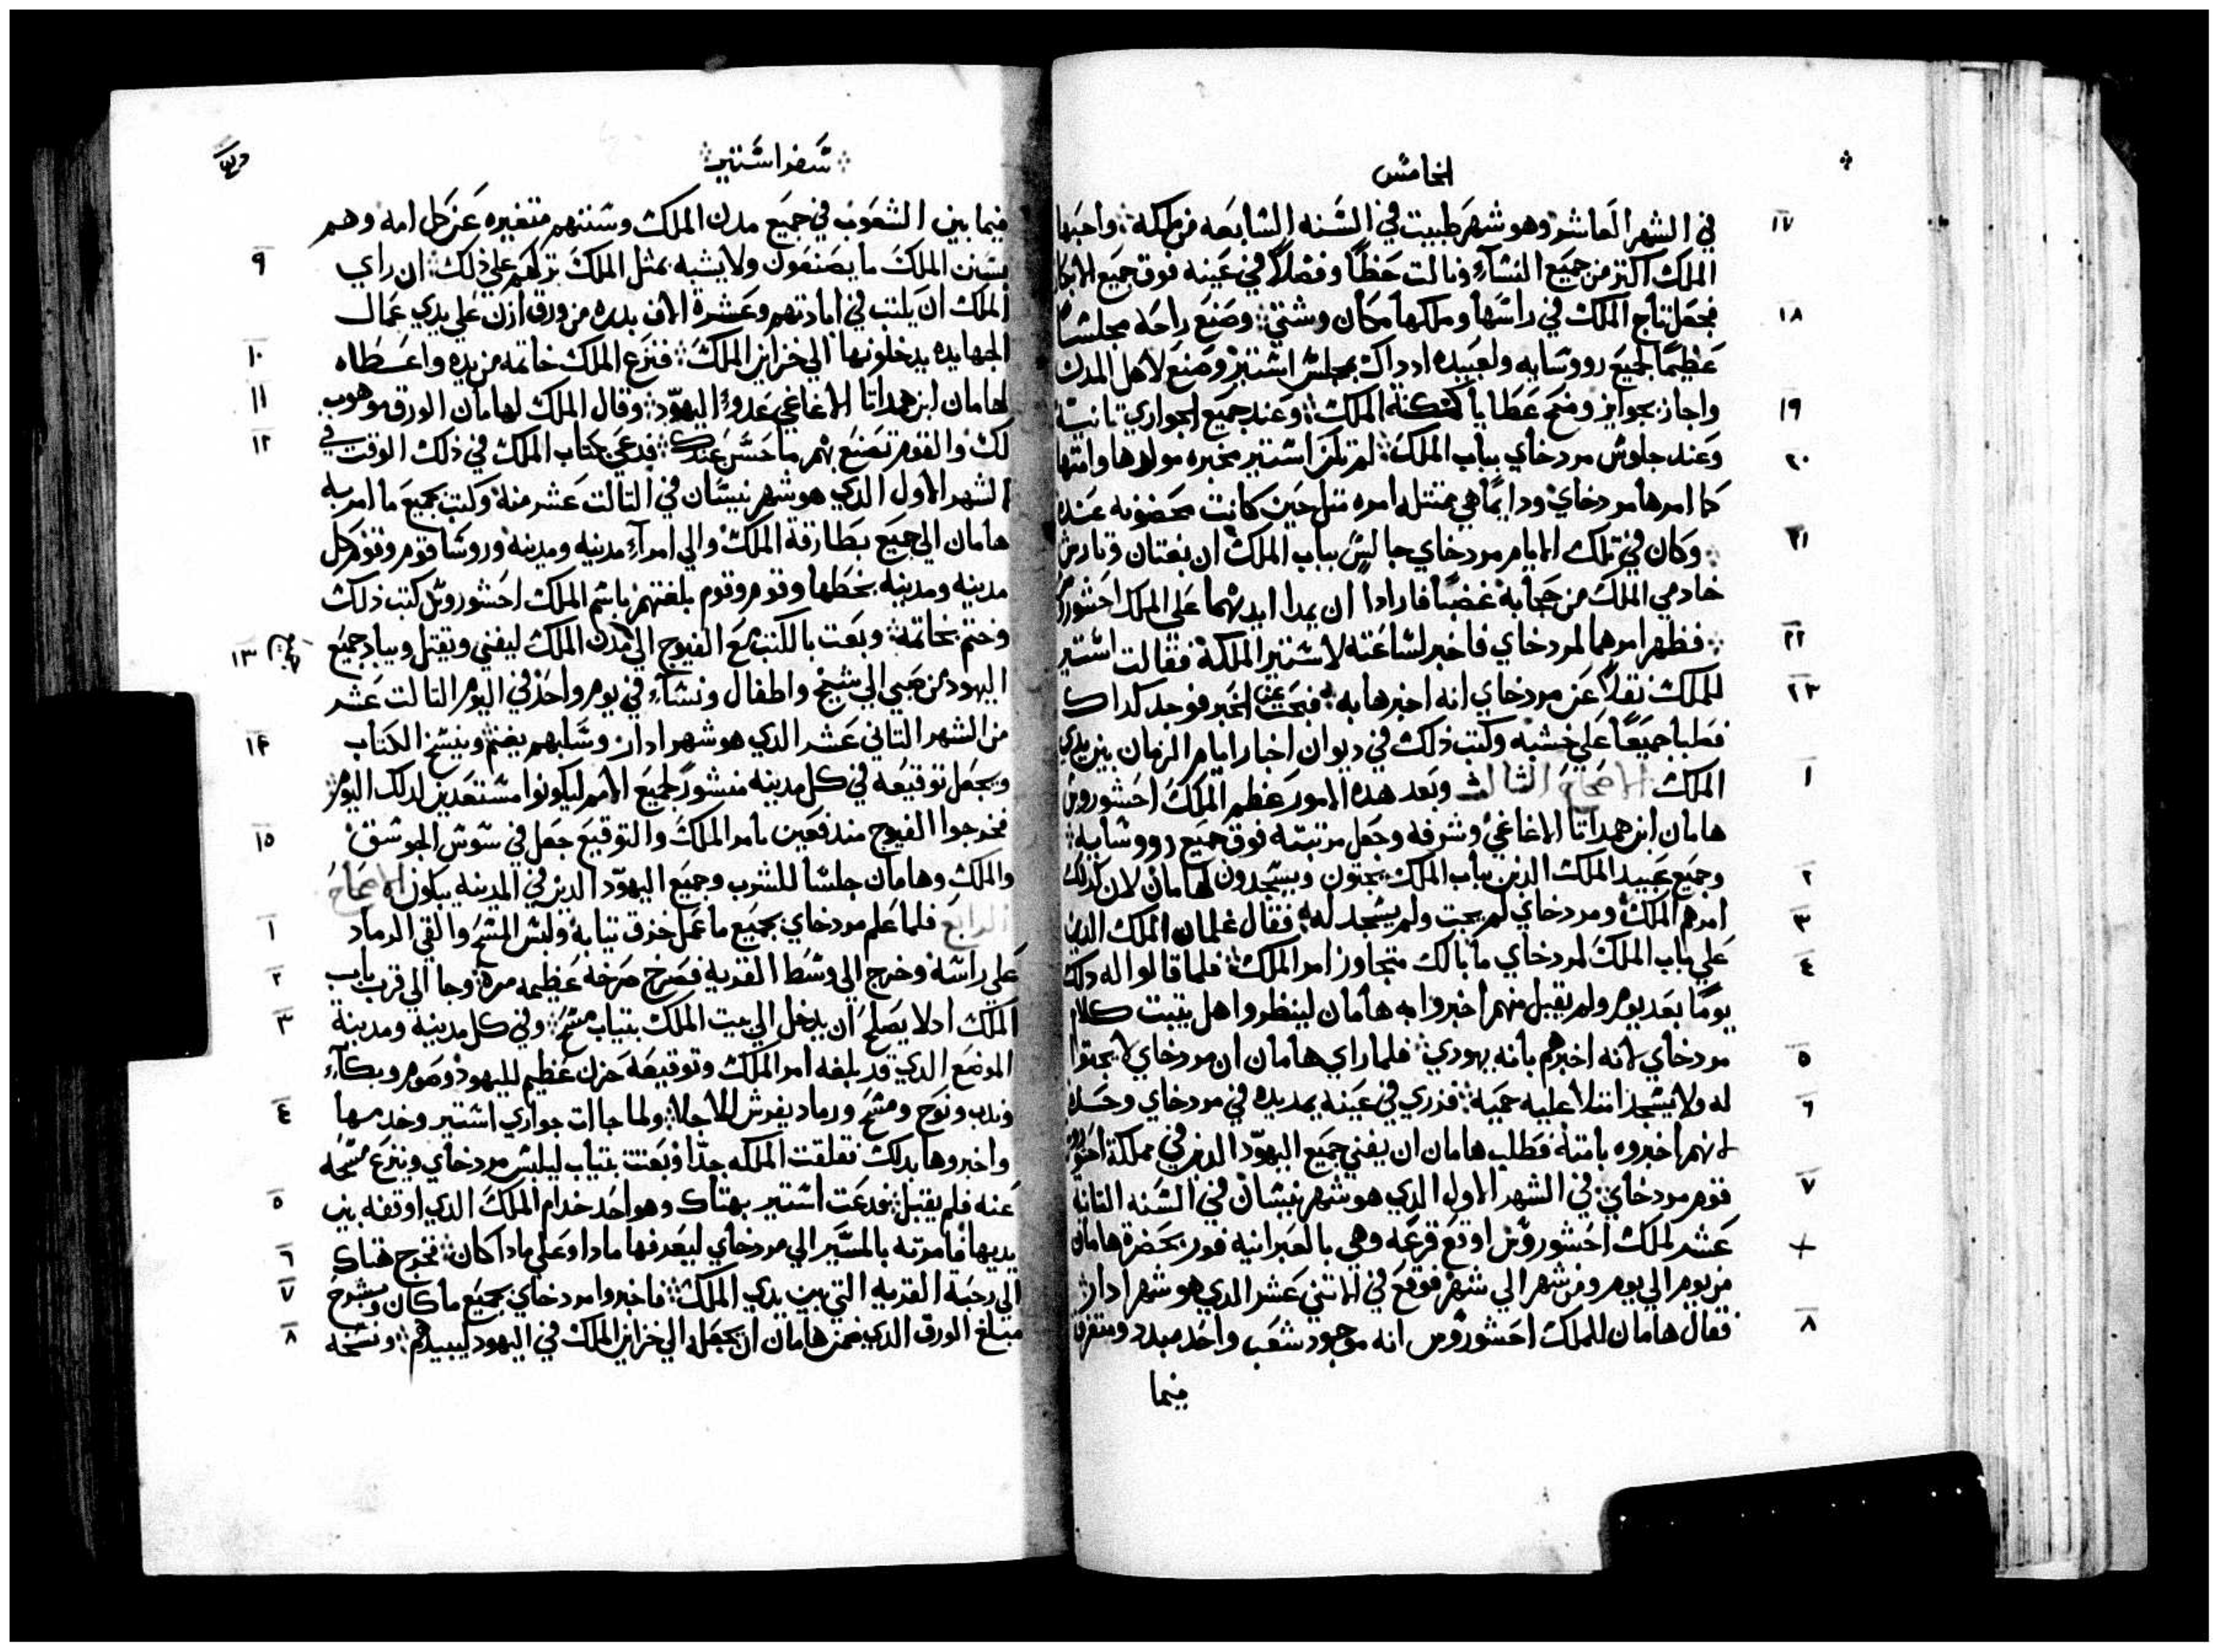 الخامس
١٧
في الشهر العاشر وهو شهر طبيت في السنه السابعه من ملكه واحبها
الملك اكتر من جميع النسآء ونالت حظاً وفضلاً في عينه فوق جميع الابكار
١٨
فجعل تاج الملك في راسها وملكها مكان وشتي وصنع راحه مجلساً
عظيماً لجميع رووسايه ولعبيده ادداك مجلس استير وصنع لاهل المدن
١٩
واجاز بجوايز ومنح عطايا كمكنة الملك وعند جميع الجواري تانية
٢٠
وعند جلوس مردخاي بباب الملك لم تكن استير مخبره مولدها وامتها
كما امرها مردخاي ودايماً هي ممتتله امره متل حين كانت محضونه عنده
٢١
وكان في تلك الايام مردخاي جالس بباب الملك ان بغتان وتارش
خادمي الملك من حجابه غضبا فارادا ان يمدا ايديهما على الملك احشوروش
٢٢
فظهر امرهما لمردخاي فاخبر لساعته لاستير الملكة فقالت استير
٢٣
للملك نقلاً عن مردخاي انه اخبرها به فبحت عن الخبر فوجد كداك
فصلبا جميعاً على خشبه وكتب ذلك في ديوان اخبار ايام الزمان بين يدي
١
الملك الاصحاح الثالث وبعد هده الامور عظم الملك احشوروش
هامان ابن همداتا الاغاغي وشرفه وجعل مرتبته فوق جميع رووسايه
٢
وجميع عبيد الملك الدين بباب الملك يجتون ويسجدون لهامان لان كدلك
٣
امرهم الملك ومردخاي لم يجت ولم يسجد له فقال غلمان الملك الدين
٤
على باب الملك لمردخاي ما بالك متجاوز امر الملك فلما قالوا له دلك
يوماً بعد يوم ولم يقبل منهم اخبروا به هامان لينظروا هل يتبت كلام
٥
مردخاي لانه اخبرهم بانه يهودي فلما راي هامان ان مردخاي لا يجتوا
٦
له ولا يسجد امتلا عليه حميه فزري في عينه يمد يده في مردخاي وحده
لانهم اخبروه بامته فطلب هامان ان يفني جميع اليهود الدين في مملكة احشوروش
٧
قوم مردخاي في الشهر الاول الدي هو شهر نيسان في السنه التانية
عشر لملك احشوروش اوقع قرعه وهي بالعبرانيه فور بحضرة هامان
من يوم الي يوم ومن شهر الي شهر فوقع في الاتني عشر الدي هو شهر ادار
٨
فقال هامان للملك احشوروش انه موجود شعب واحد مبدد ومتفرق
فيما
سفر استير
فيما بين الشعوب في جميع مدن الملك وسننهم متغيره عن كل امه وهم
٩
بسنن الملك ما يصنعون ولا يشبه بمتل الملك تركهم على ذلك ان راي
الملك ان يكتب في ابادتهم وعشرة الاف بدره من ورق ازن على يدي عمال
١٠
الجهابده يدخلونها الي خزاين الملك فنزع الملك خاتمه من يده واعطاه
١١
لهامان ابن همداتا الاغاغي عدو اليهود وقال الملك لهامان الورق موهوب
١٢
لك والقوم تصنع بهم ما حسن عندك فدعي كتاب الملك في ذلك الوقت في
الشهر الاول الدي هو شهر نيسان في التالت عشر منه وكتب بجميع ما امر به
هامان الي جميع بطارقة الملك والي امرآء مدنيه ومدنيه وروسا قوم وقوم كل
مدنيه ومدنيه بخطها وقوم وقوم بلغتهم باسم الملك احشوروش كتب ذلك
١٣
وختم بخاتمه وبعت بالكتب مع الفيوج الي مدن الملك ليفني ويقتل ويباد جميع
اليهود من صبي الي شيخ واطفال ونسآء في يوم واحد في اليوم التالت عشر
١٤
من الشهر التاني عشر الدي هو شهر ادار وسلبهم يغنم وينسخ الكتاب
ويجعل توقيعه في كل مدينه منشور لجميع الامم ليكونوا مستعدين لدلك اليوم
١٥
فخرجوا الفيوج مندفعين بامر الملك والتوقيع جعل في سوس الجوسق
والملك وهامان جلسا للشرب وجميع اليهود الدين في المدينه يبكون الاصحاح
١
الرابع فلما علم مردخاي بجميع ما عمل خزق تيابه ولبس المسح والقي الرماد
٢
على راسه وخرج الي وسط القريه فصرخ صرخه عظيمه مره وجا الي قرب باب
٣
الملك ادلا يصلح ان يدخل الي بيت الملك بتياب مسح وفي كل مدينه ومدينة
الموضع الدي قد بلغه امر الملك وتوقيعه حزن عظيم لليهود وصوم وبكآء
٤
وندب ونوح ومسح ورماد يفرش للاجلا ولما جاات جواري استير وخدمها
واخبروها بدلك تقلقت الملكه جداً وبعتت بتياب ليلبس مردخاي وينزع مسحه
٥
عنه فلم يقبل فدعت استير بهتاك وهو احد خدام الملك الدي اوقفه بين
٦
يديها فامرته بالمسير الي مردخاي ليعرفها مادا وعلى مادا كان فخرج هتاك
٧
الي رحبة القريه التي بين يدي الملك فاخبروا مردخاي بجميع ما كان وبشرح
٨
مبلغ الورق الدي ضمن هامان ان يجعله الي خزاين الملك في اليهود ليبيدهم ونسخه